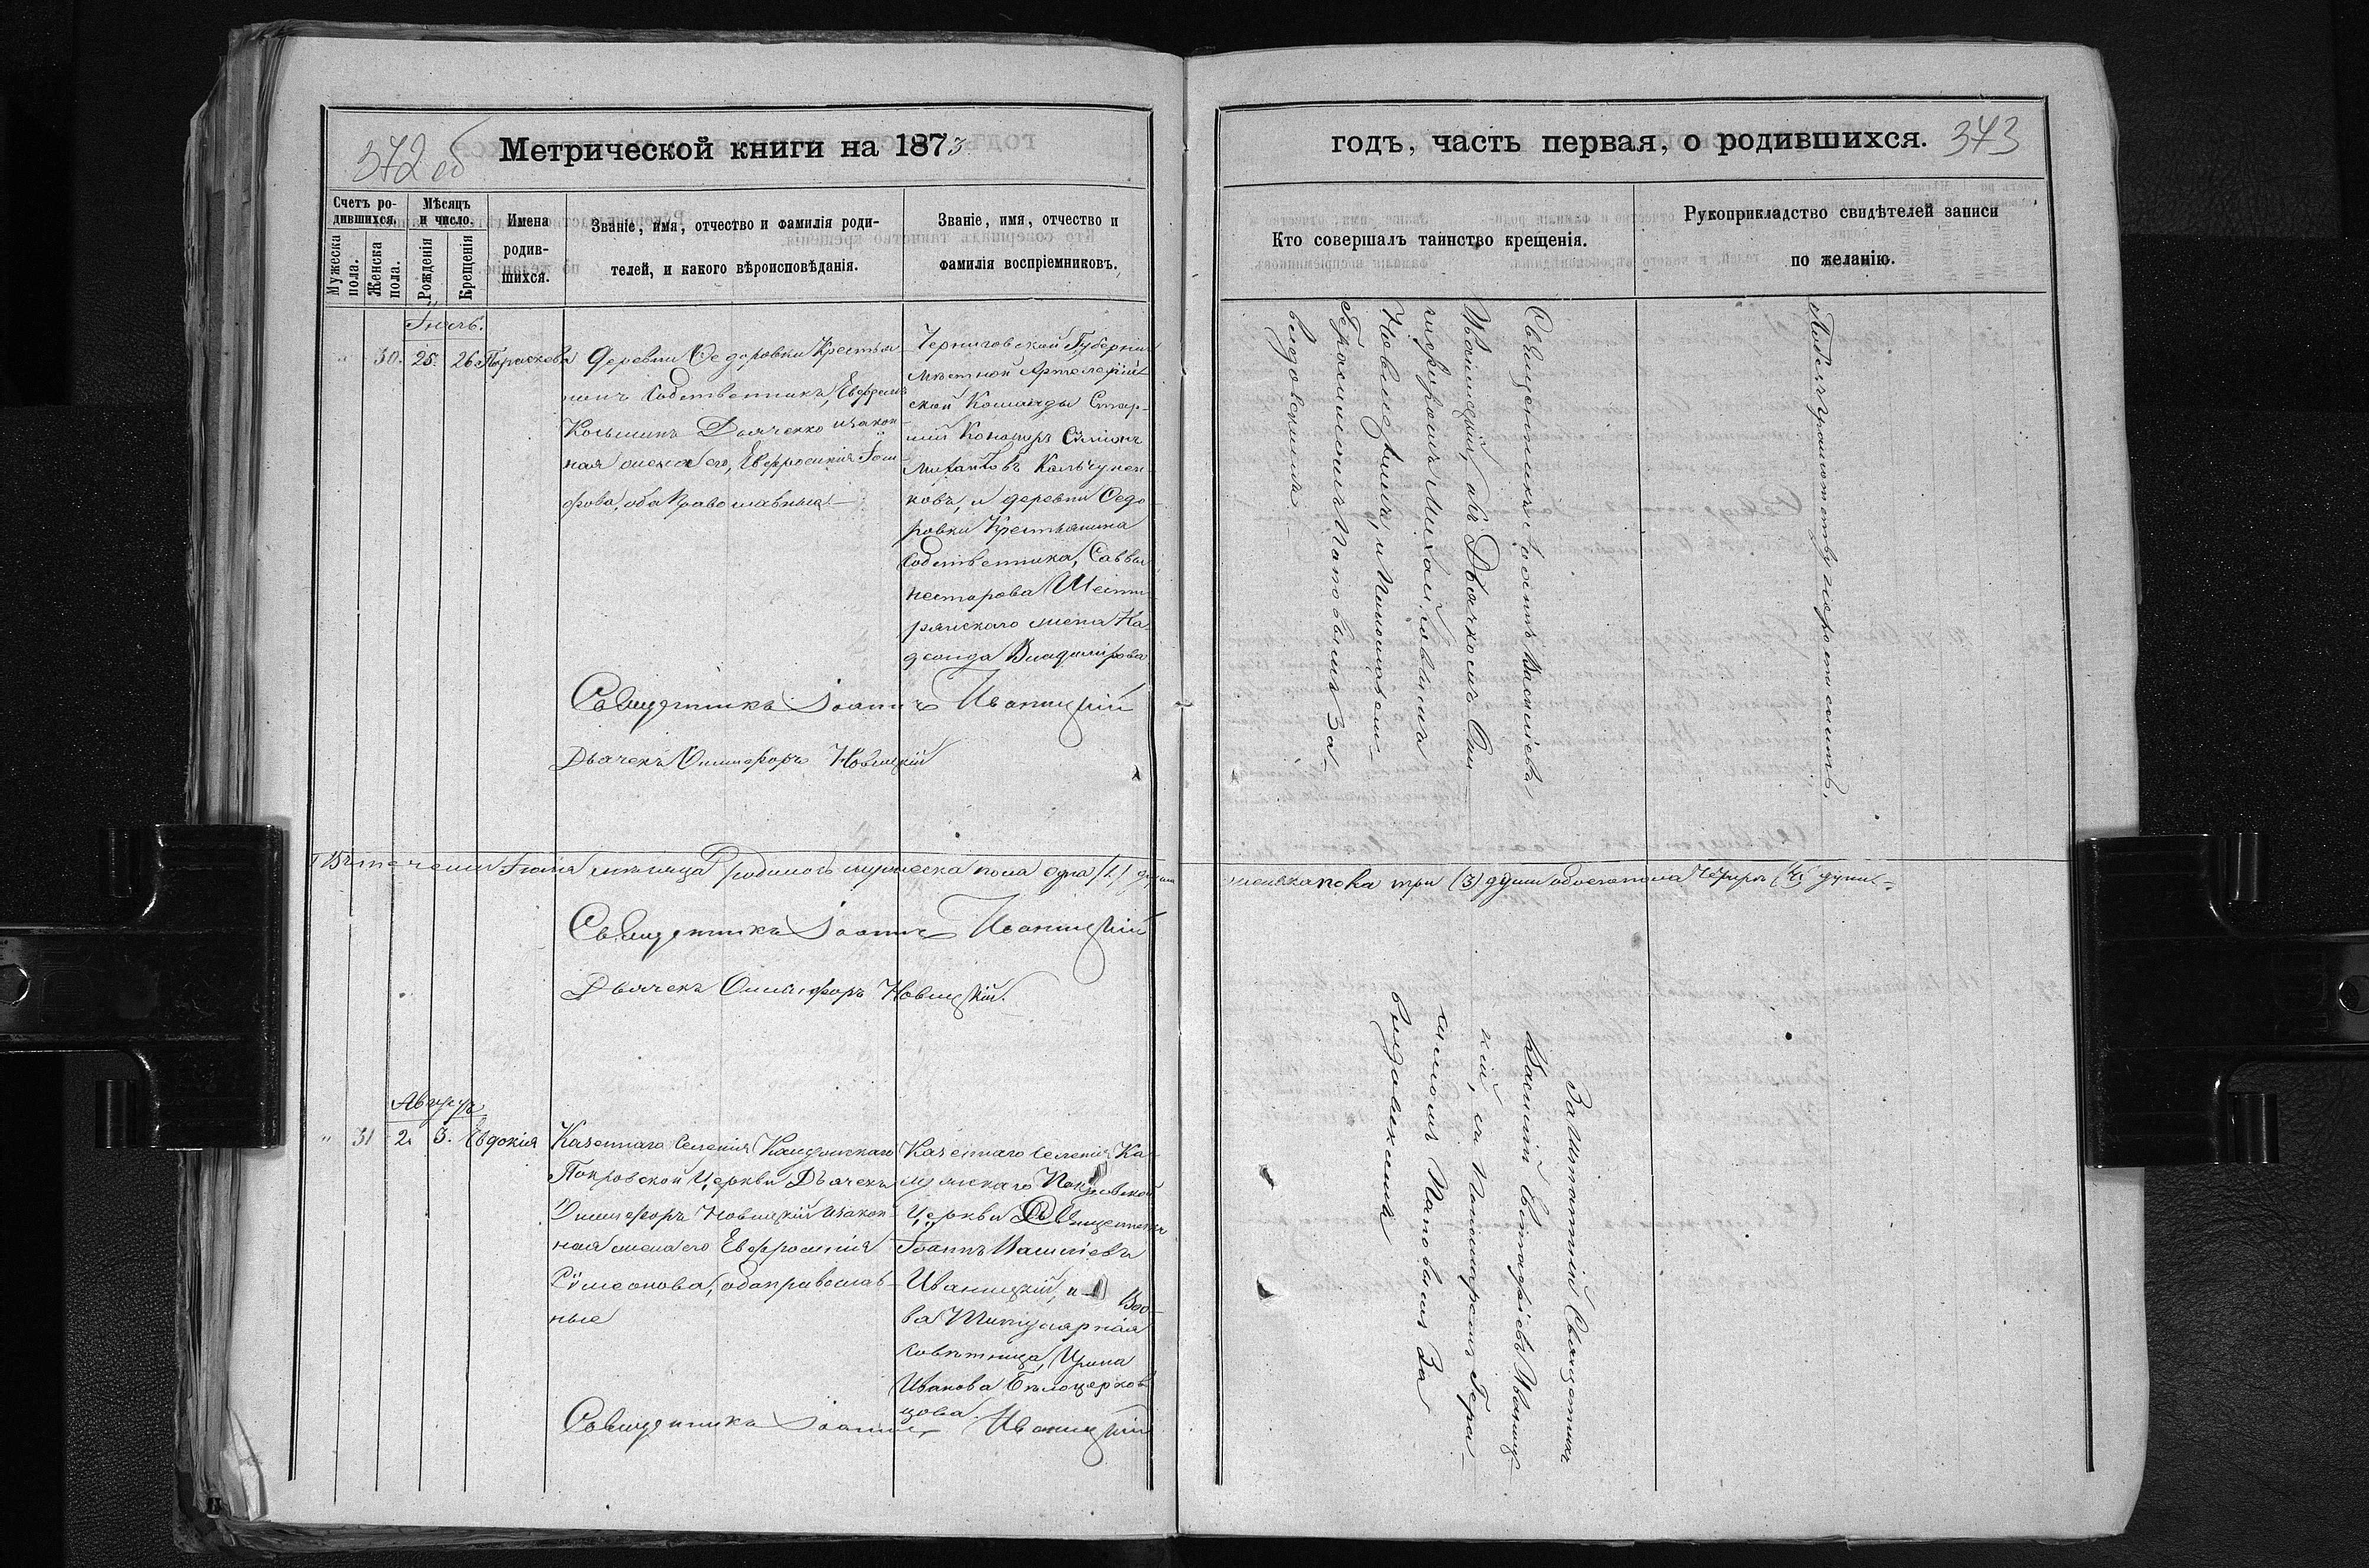 372 об
Метрической книги на 1873
Счетъ ро-
дившихся.
Мужеска
пола.
Женска
пола.
Мѣсяцъ
и число.
Рожденія
Крещенія
Имена
родив-
шихся.
Званіе, имя, отчество и фамилія роди-
телей, и какого вѣроисповѣданія.
Званіе, имя, отчество и
фамилія воспріемниковъ.
30. 25. 26 Параскева
Деревни Ѳедоровки Крестья
нинъ Собственникъ, Евфимъ
Косьминъ Дьяченко и закон
ная жена его, Евфросинія
оба Православные
Черниговской Губерніи
Мѣстной Артилерій
ской Команды Стар-
шій
ковъ, и деревни Ѳедо
ровки Крестьянина
Собственника, Саввы
Нестерова
жена На
дежда Владимірова
Священникъ Іоаннъ Иваницкій
Дьячекъ Онисифоръ Новицкій
Въ теченіи Іюля мѣсяца родилось мужеска пола одна (1) душа
Священникъ Іоаннъ Иваницкій
Дьячекъ Онисифоръ Новицкій.
Августъ
" 31 2. 3. Евдокія
Казеннаго Селенія
Покровской Церкви Дьячекъ
Онисифоръ Новицкій и закон
ная жена его Евфросинія
Сѵмеонова, оба православ-
ные
Казеннаго Селенія Ка
Покровской
Церкви Священникъ
Іоаннъ Василіевъ
Иваницкій, и Вдо-
ва Титулярная
Совѣтница, Ирина
Иванова Бѣлоцерков
цова.
Священникъ Іоаннъ Иваницкій
годъ, часть первая, о родившихся.
373
Кто совершалъ таинство крещенія.
Рукоприкладство свидѣтелей записи
по желанію.
Священникъ Іоаннъ Василіевъ
Иваницкій, съ Дьячкомъ Они
сифоромъ Михайловымъ
Новицкимъ, и Пономаремъ
Герасимомъ Поповымъ За-
видовскимъ
женска пола три (3) души обоего пола четыре (4) души
За Священникъ
Василій Иваниц-
кій, съ Пономаремъ Гера-
симомъ Поповымъ За
видовскимъ